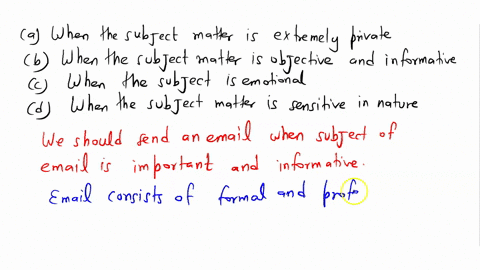 (a) When the subject matter is extremely private
(b) When the subject matter is objective and informative
(c) When the subject is emotional
(d) When the subject matter is sensitive in nature
We should send an email when subject of
email is important and informative.
Email consists of formal and profe